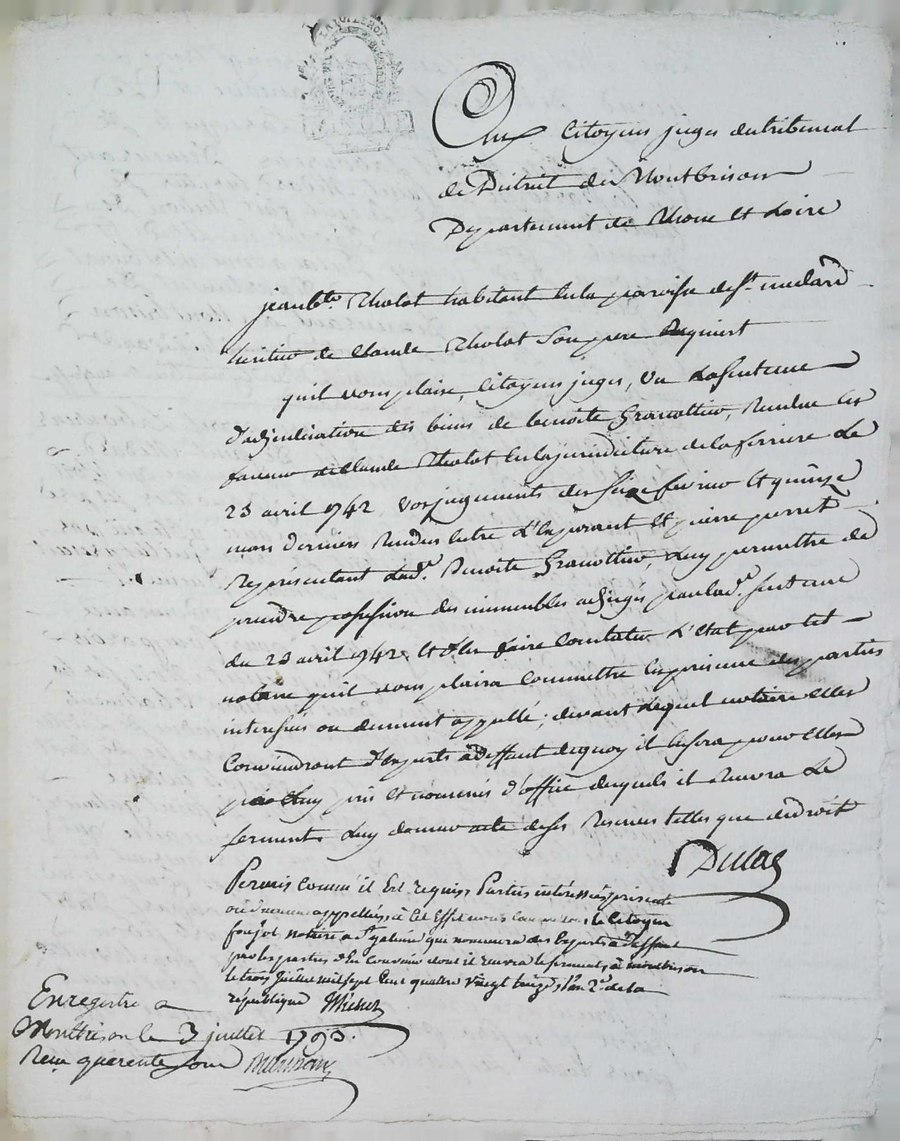 Aux Citoyens juges du tribunal
de District de Montbrison
Departement de Rhone et Loire
jean bte. Tholot habitant en la paroisse de st. medard
heritier de Claude Tholot son pere Requiert
quil vous plaise, Citoyens juges, vu La sentence
d'adjudication des biens de benoite Granottier, Rendue en
faveur de Claude Tholot en la jurisdiction de la ferriere Le
23 avril 1742 vos jugements des seize fevrier et quinze
mars derniers Rendus Entre L'Exposant Et pierre perret
Representant Lad. Benoite Granottier, Luy permettre de
prendre possession des immeubles adjugés par lad. sentence
du 23 avril 1742 et d'en faire Constater L'Etat par tel
notaire quil vous plaira Commettre En presence des parties
interessées ou dument appellé; devant Lequel notaire elles
Conviendront d'Experts a deffaut de quoy il en sera pour elles
par Luy pris et nommés d'office desquels il Recevra Le
serment, Luy donner acte de ses Reserves telles que de droit
Dulac
Permis comm'il Est requis Parties intéressées présente
ou duement appellées, à Cet Effet nous Commettons le Citoyen
notaire a St galmier que nommera des Experts a deffaut
par les parties d'En Convenir dont il recevra le serment, à montbrison
le trois Juillet mil sept Cent quatre Vingt treize l'an 2e. de la
république
Enregistré a
Montbrison le 3 juillet 1793.
Recu quarente sous